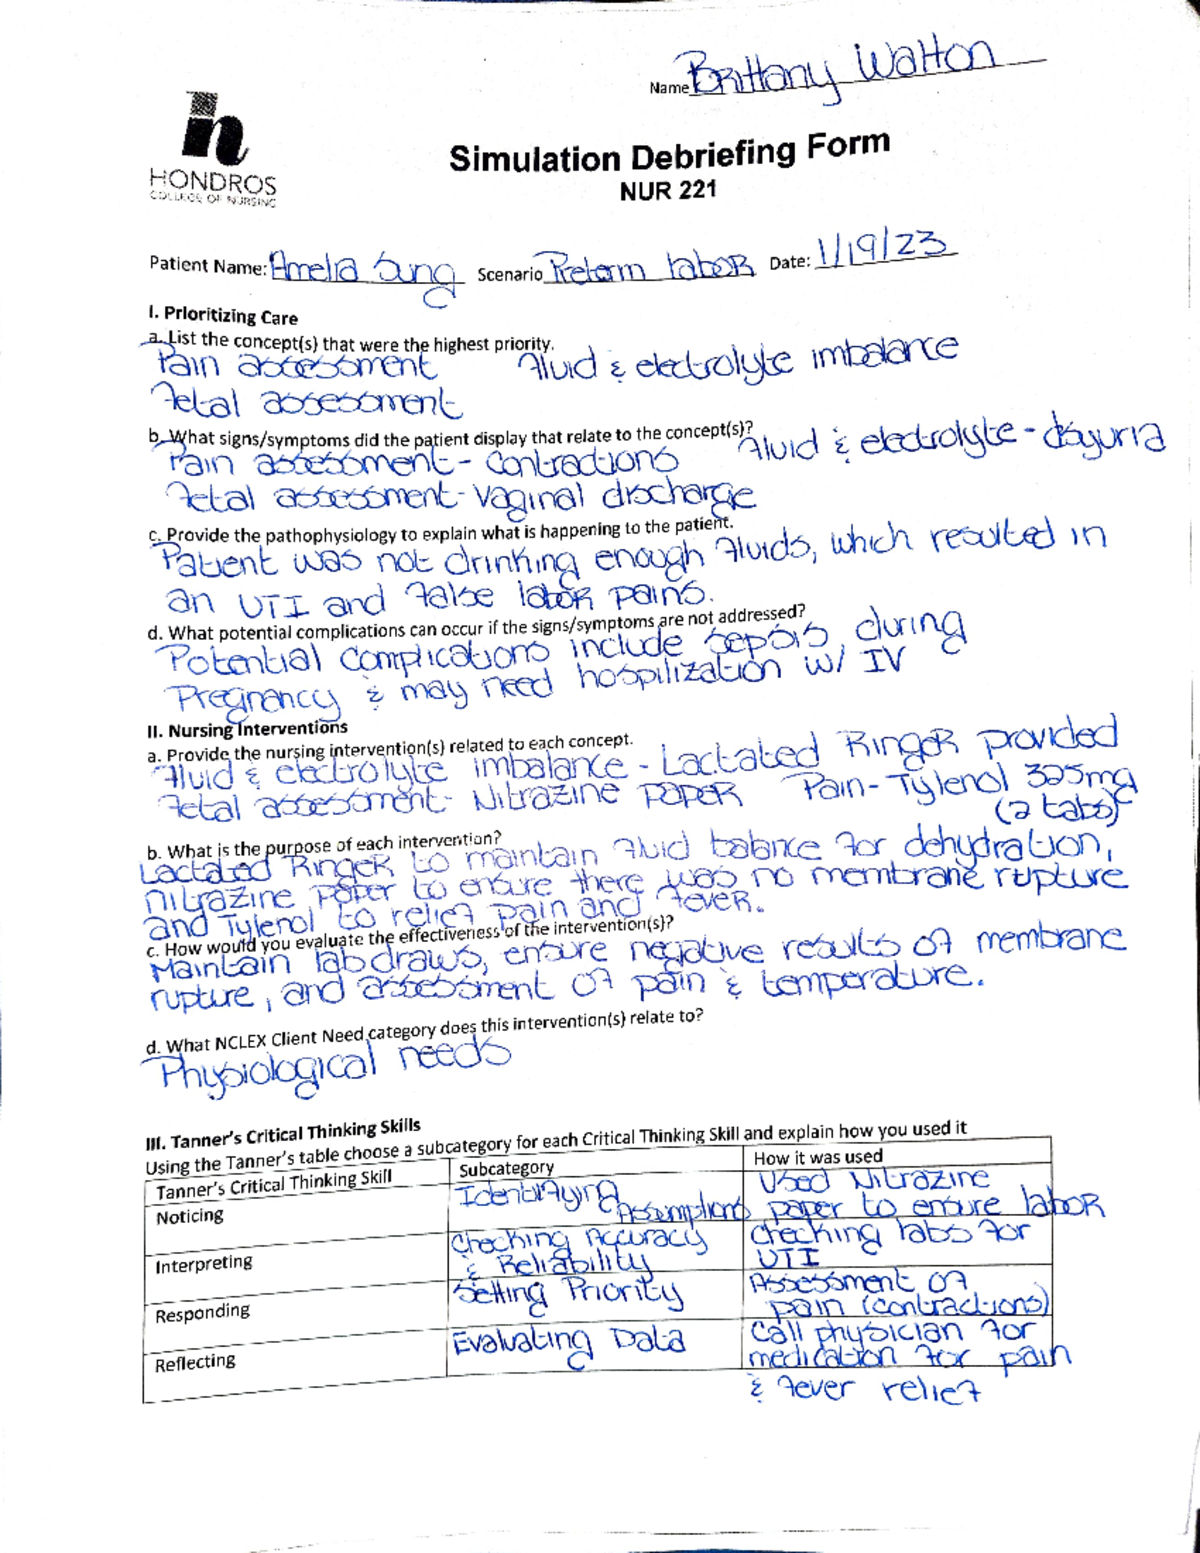 Name Brittany Walton
h
HONDROS
COLLEGE OF NURSING
Simulation Debriefing Form
NUR 221
Patient Name: Amelia Sung Scenario Preterm labor Date: 1/19/23
I. Prioritizing Care
a. List the concept(s) that were the highest priority.
Pain assessment Fluid & electrolyte imbalance
Fetal assessment
b. What signs/symptoms did the patient display that relate to the concept(s)?
Pain assessment - contractions Fluid & electrolyte - dysuria
Fetal assessment - vaginal discharge
c. Provide the pathophysiology to explain what is happening to the patient.
Patient was not drinking enough fluids, which resulted in
an UTI and false labor pains.
d. What potential complications can occur if the signs/symptoms are not addressed?
Potential complications include sepsis during
Pregnancy & may need hospilization w/ IV
II. Nursing Interventions
a. Provide the nursing intervention(s) related to each concept.
Fluid & electrolyte imbalance - Lactated Ringer provided
Fetal assessment - Nitrazine paper Pain - Tylenol 325mg
(2 tabs)
b. What is the purpose of each intervention?
Lactated Ringer to maintain fluid balance for dehydration,
nitrazine paper to ensure there was no membrane rupture
and Tylenol to relief pain and fever.
c. How would you evaluate the effectiveness of the intervention(s)?
Maintain lab draws, ensure negative results of membrane
rupture, and assessment of pain & temperature.
d. What NCLEX Client Need category does this intervention(s) relate to?
Physiological needs
III. Tanner's Critical Thinking Skills
Using the Tanner's table choose a subcategory for each Critical Thinking Skill and explain how you used it
Tanner's Critical Thinking Skill Subcategory How it was used
Noticing Identifying Assumptions Used Nitrazine
paper to ensure labor
Interpreting Checking Accuracy checking labs for
& Reliability UTI
Responding Setting Priority Assessment of
pain (contractions)
Reflecting Evaluating Data Call physician for
medication for pain
& fever relief